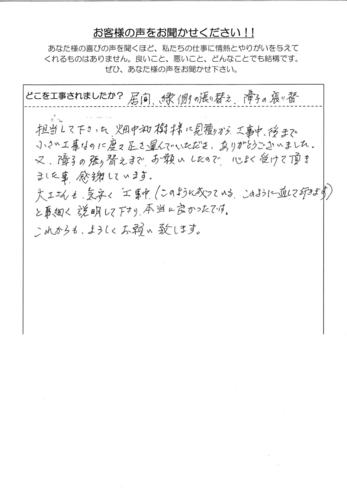 お客様の声をお聞かせください!!
あなた様の喜びの声を聞くほど、私たちの仕事に情熱とやりがいを与えて
くれるものはありません。良いこと、悪いこと、どんなことでも結構です。
ぜひ、あなた様の声をお聞かせ下さい。
どこを工事されましたか? 居間、縁側の張り替え、障子の張り替
担当して下さった 畑中和樹様に見積から 工事中、後まで
小さい工事なのに度々足を運んでいただき、ありがとうございました。
又、障子の張り替えまで、お願いしたので、心よく受けて頂き
ました事 感謝しています。
大工さんも、気安く 工事中(このように成っている、このように直して行きます)
と事細く説明して下さり、本当に良かったです。
これからも、よろしくお願い致します。